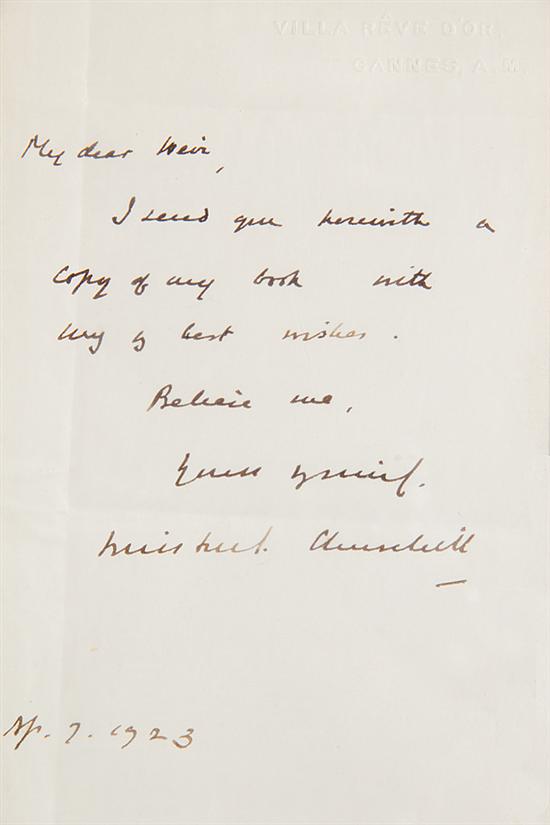 VILLA RÊVE D'OR,
CANNES, A.M.
My dear Weir,
I send you herewith a
copy of my book with
my best wishes.
Believe me,
Yours
Winston S. Churchill
Ap. 7. 1923